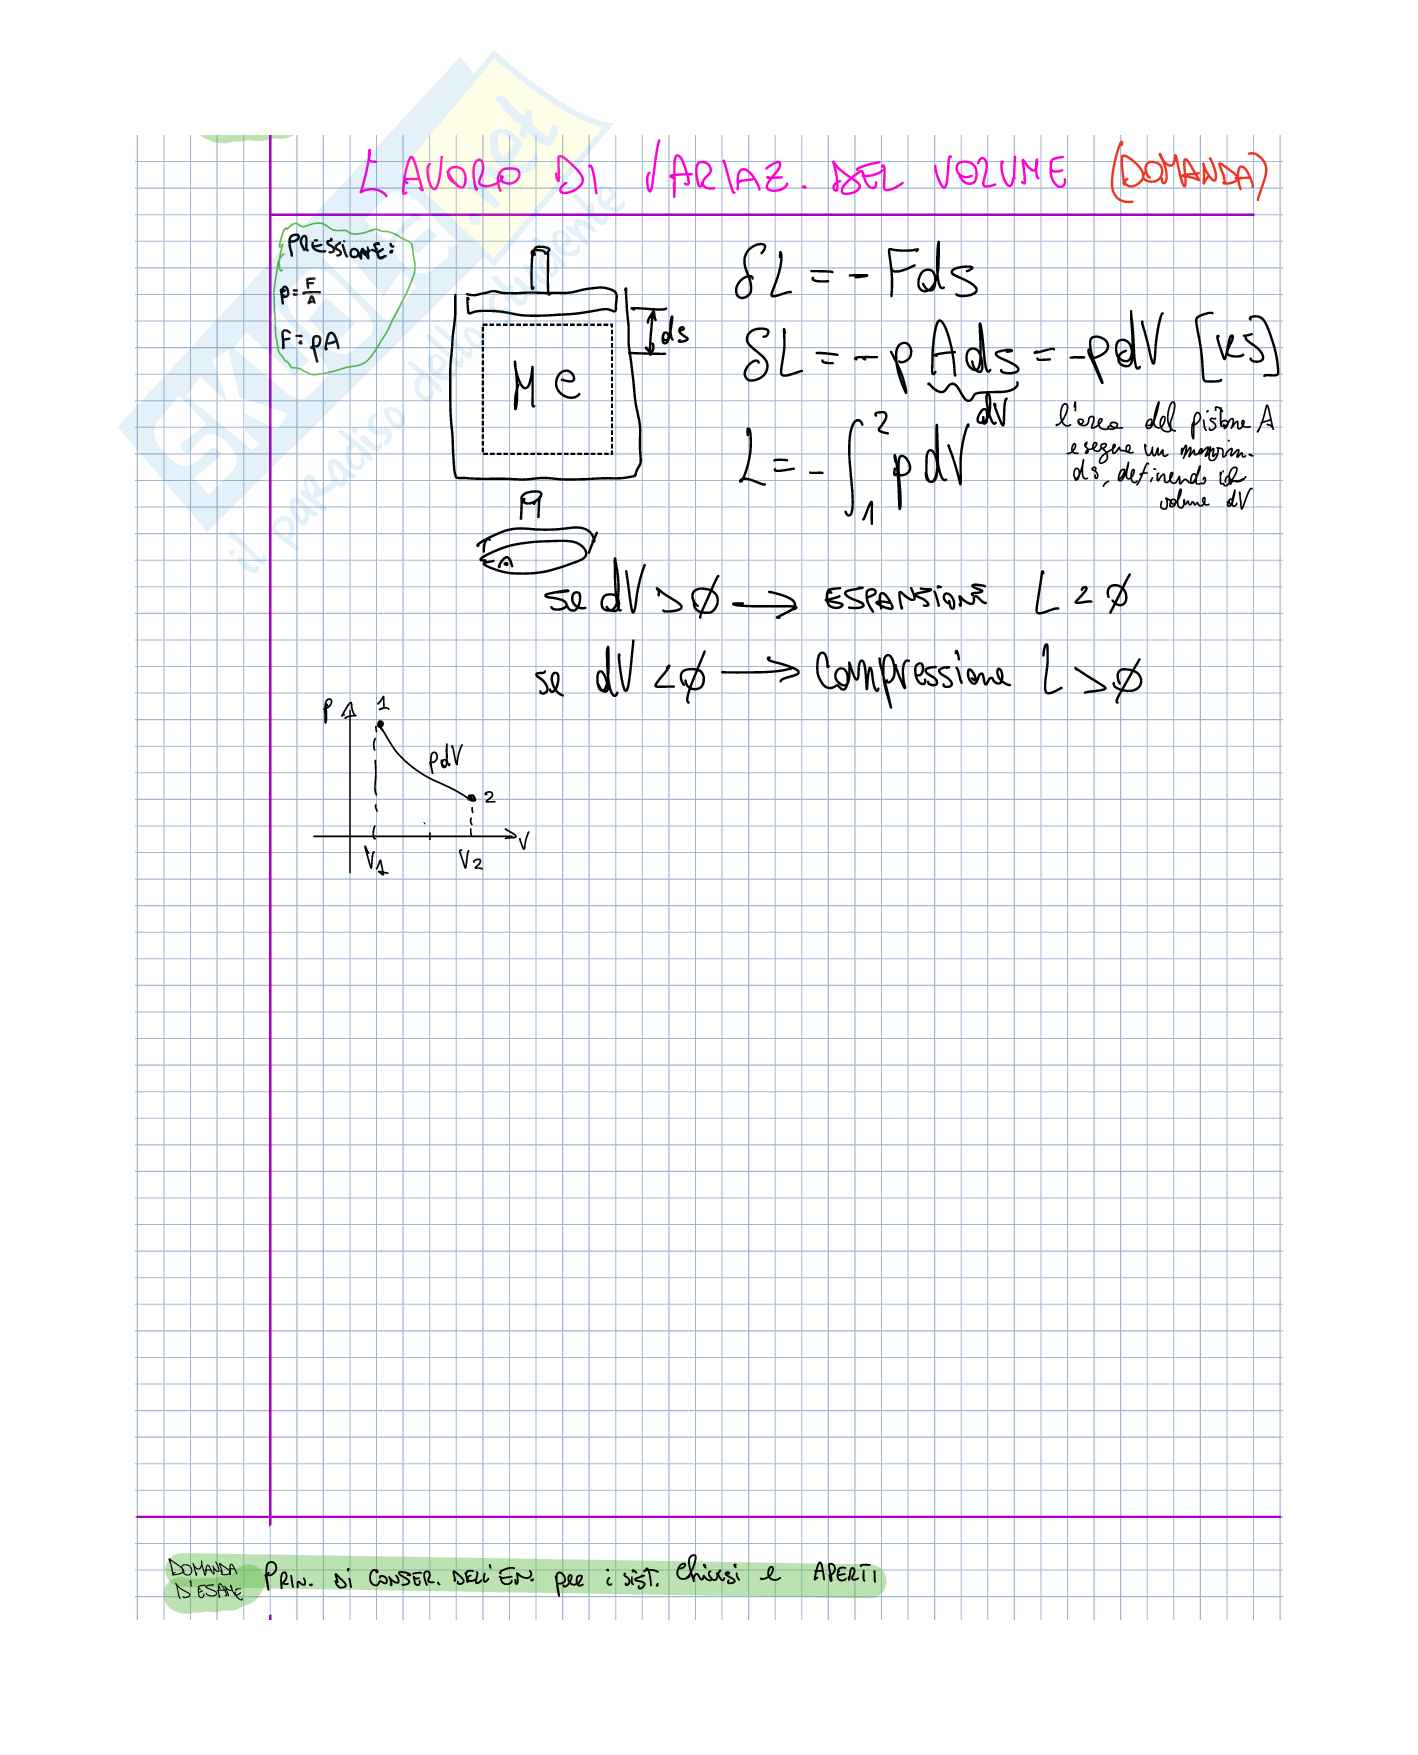 LAVORO DI VARIAZ. DEL VOLUME (DOMANDA)
PRESSIONE:
p = F/A
F = pA
Me
ds
A
δL = - Fds
δL = - p Ads = - pdV [KJ]
dV
L = - ∫₁² p dV
l'area del pistone A
esegue un
ds, definendo il
volume dV
se dV > ∅ → ESPANSIONE L < ∅
se dV < ∅ → Compressione L > ∅
P
1
pdV
2
V
V1
V2
DOMANDA
D'ESAME
PRIN. DI CONSER. DELL'EN. per i SIST. Chiusi e APERTI
SKUOLA.net
il paradiso dello studente